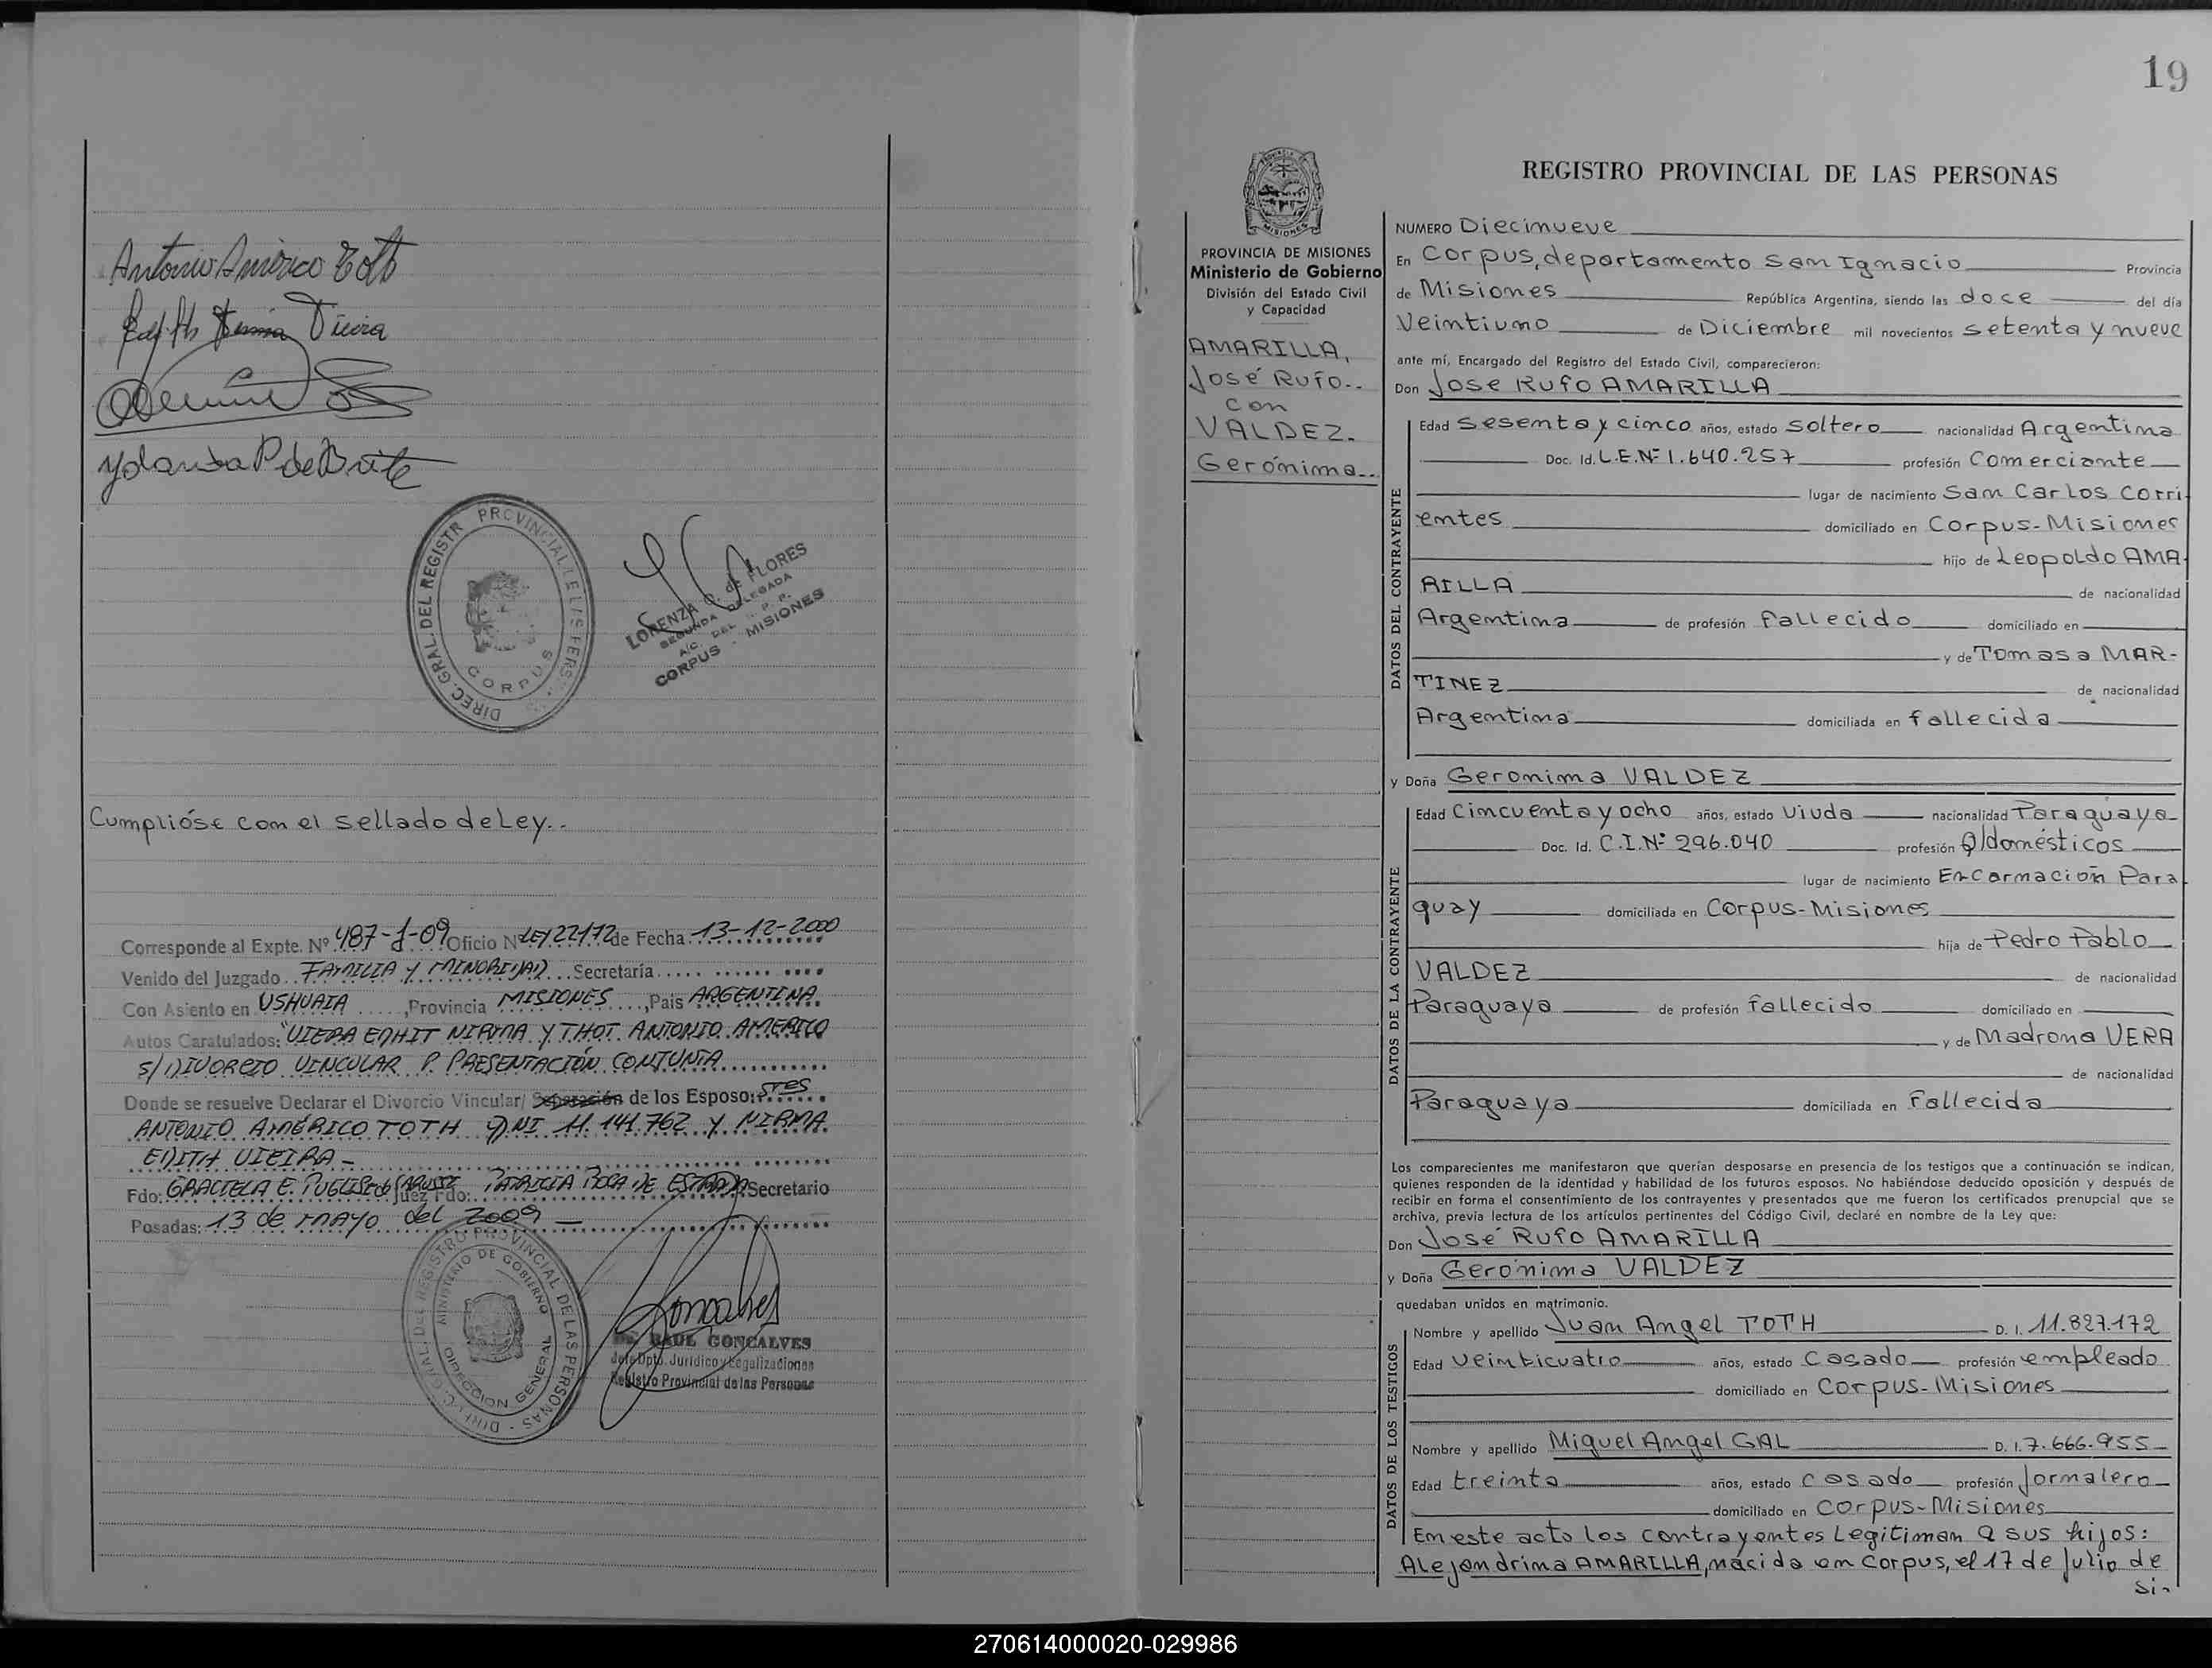 Antonio Américo Toth
Vieira
Yolanda P de Brite
DIREC. GRAL. DEL REGISTR PROVINCIAL
CORPUS
LORENZA G. de FLORES
SEGUNDA DELEGADA
A/C DEL R. P. P.
CORPUS - MISIONES
Cumplióse con el sellado de Ley..
Corresponde al Expte. Nº 487-J-09 Oficio Nº de Fecha 13-12-2000
Venido del Juzgado FAMILIA Y MINORIDAD Secretaría
Con Asiento en USHUAIA, Provincia MISIONES, País ARGENTINA
Autos Caratulados: "VIERA EDHIT NIRMA Y THOT ANTONIO AMERICO
S/ DIVORCIO VINCULAR P. PRESENTACIÓN CONJUNTA
Donde se resuelve Declarar el Divorcio Vincular/ Separación de los Esposo: Sres
ANTONIO AMÉRICO TOTH DNI 11.141.762 Y NIRMA
EDITH VIEIRA -
Fdo: GRACIELA E. Juez Fdo: PATRICIA Secretario
Posadas: 13 de mayo del 2009 -
DIREC. GRAL. DEL REGISTRO PROVINCIAL DE LAS PERSONAS
MINISTERIO DE GOBIERNO
DIRECCION GENERAL
Goncalves
Dr. RAUL GONCALVES
Jefe Dpto. Jurídico y Legalizaciones
Registro Provincial de las Personas
19
MISIONES
PROVINCIA DE MISIONES
Ministerio de Gobierno
División del Estado Civil
y Capacidad
AMARILLA,
José Rufo..
con
VALDEZ.
Gerónima..
REGISTRO PROVINCIAL DE LAS PERSONAS
NUMERO Diecinueve
En Corpus, departamento San Ignacio Provincia
de Misiones República Argentina, siendo las doce del día
Veintiuno de Diciembre mil novecientos setenta y nueve
ante mí, Encargado del Registro del Estado Civil, comparecieron:
Don José Rufo AMARILLA
DATOS DEL CONTRAYENTE
Edad Sesenta y cinco años, estado Soltero nacionalidad Argentina
Doc. Id. L.E.Nº 1.640.257 profesión Comerciante
lugar de nacimiento San Carlos Corri
entes domiciliado en Corpus-Misiones
hijo de Leopoldo AMA
RILLA de nacionalidad
Argentina de profesión Fallecido domiciliado en
y de Tomasa MAR-
TINEZ de nacionalidad
Argentina domiciliada en fallecida
y Doña Geronima VALDEZ
DATOS DE LA CONTRAYENTE
Edad Cincuenta y ocho años, estado Viuda nacionalidad Paraguaya
Doc. Id. C.I.Nº 296.040 profesión Q/domésticos
lugar de nacimiento Encarnación Para
guay domiciliada en Corpus-Misiones
hija de Pedro Pablo
VALDEZ de nacionalidad
Paraguaya de profesión fallecido domiciliado en
y de Madrona VERA
de nacionalidad
Paraguaya domiciliada en Fallecida
Los comparecientes me manifestaron que querían desposarse en presencia de los testigos que a continuación se indican,
quienes responden de la identidad y habilidad de los futuros esposos. No habiéndose deducido oposición y después de
recibir en forma el consentimiento de los contrayentes y presentados que me fueron los certificados prenupcial que se
archiva, previa lectura de los artículos pertinentes del Código Civil, declaré en nombre de la Ley que:
Don José Rufo AMARILLA
y Doña Gerónima VALDEZ
quedaban unidos en matrimonio.
DATOS DE LOS TESTIGOS
Nombre y apellido Juan Angel TOTH D. I. 11.827.172
Edad Veinticuatro años, estado Casado profesión empleado
domiciliado en Corpus-Misiones
Nombre y apellido Miguel Angel GAL D. I. 7.666.955
Edad treinta años, estado casado profesión Jornalero
domiciliado en Corpus-Misiones
En este acto los contrayentes Legitiman a sus hijos:
Alejandrina AMARILLA, nacida en Corpus, el 17 de Julio de
si-
270614000020-029986